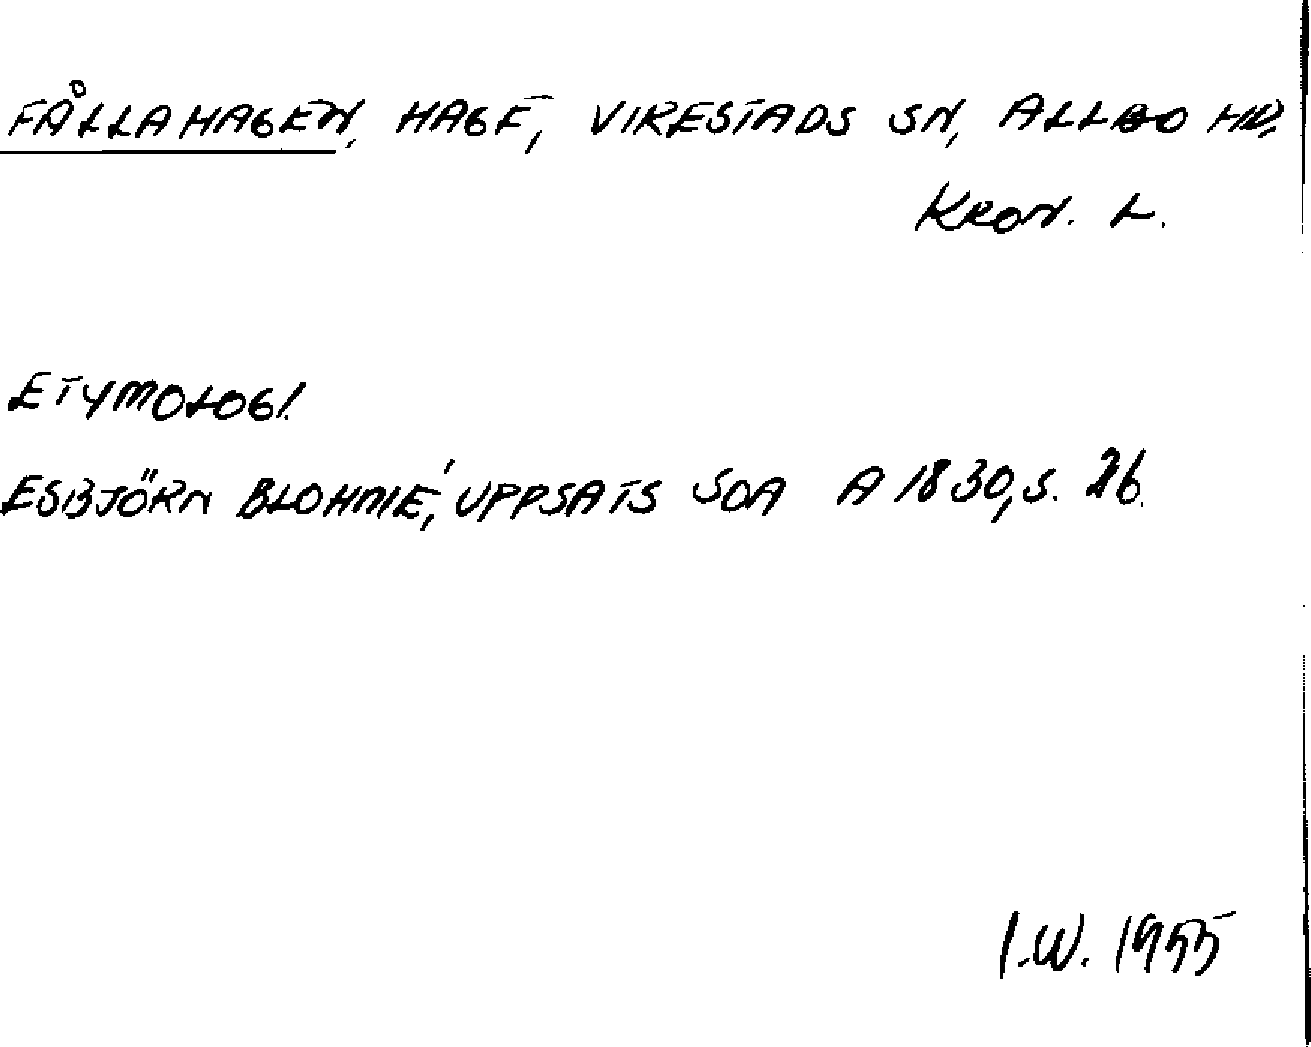 FÅLLAHAGEN, HAGE, VIRESTADS SN, ALLBO HD,
KRON. L.
ETYMOLOGI.
ESBJÖRN BLOHMÉ, UPPSATS SOA A 1830, S. 26.
I.W. 1955